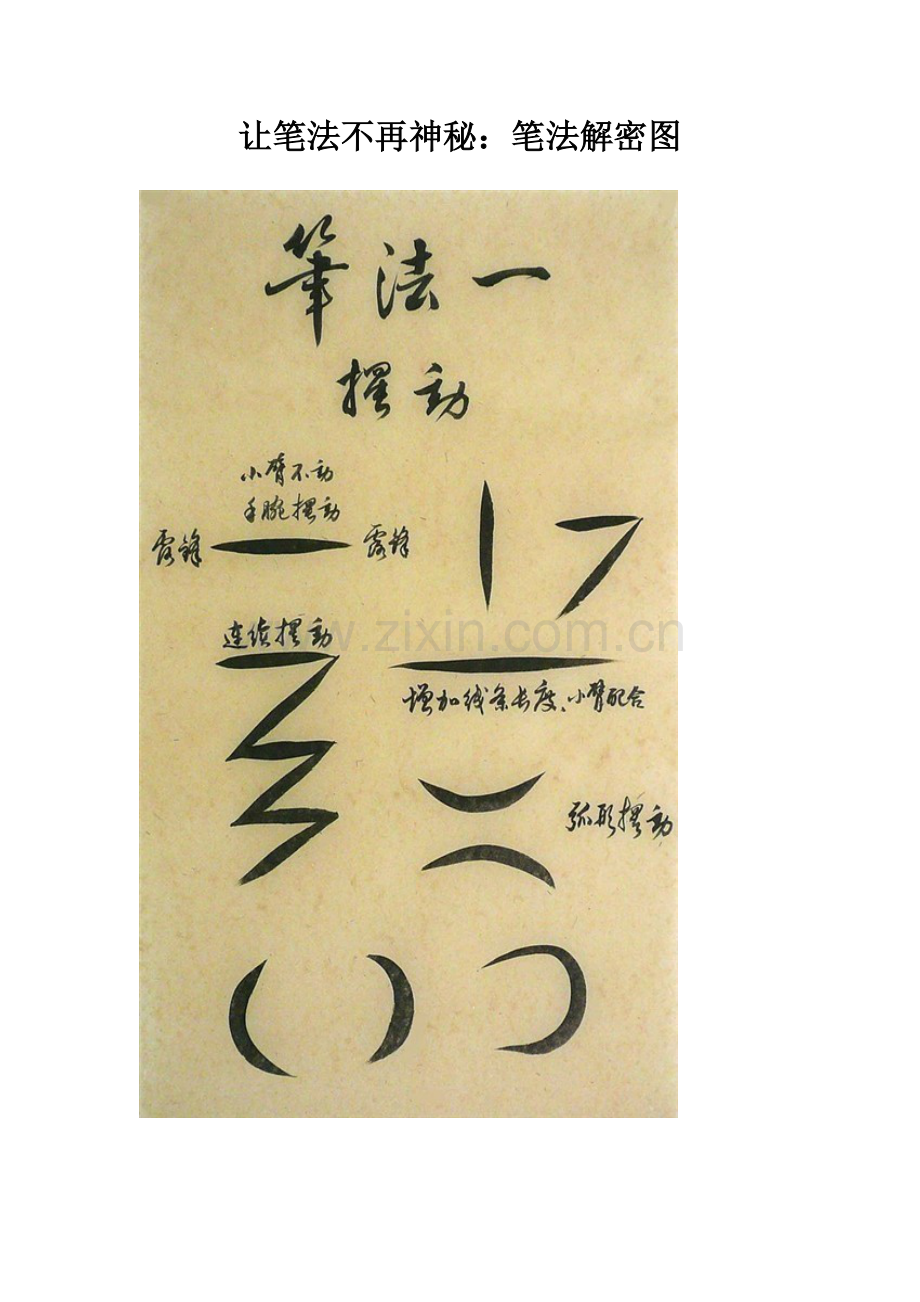 让笔法不再神秘：笔法解密图
筆法一
擺動
小臂不动
手腕摆动
露锋
露锋
连续摆动
www.zixin.com.cn
增加线条长度、小臂配合
弧形摆动